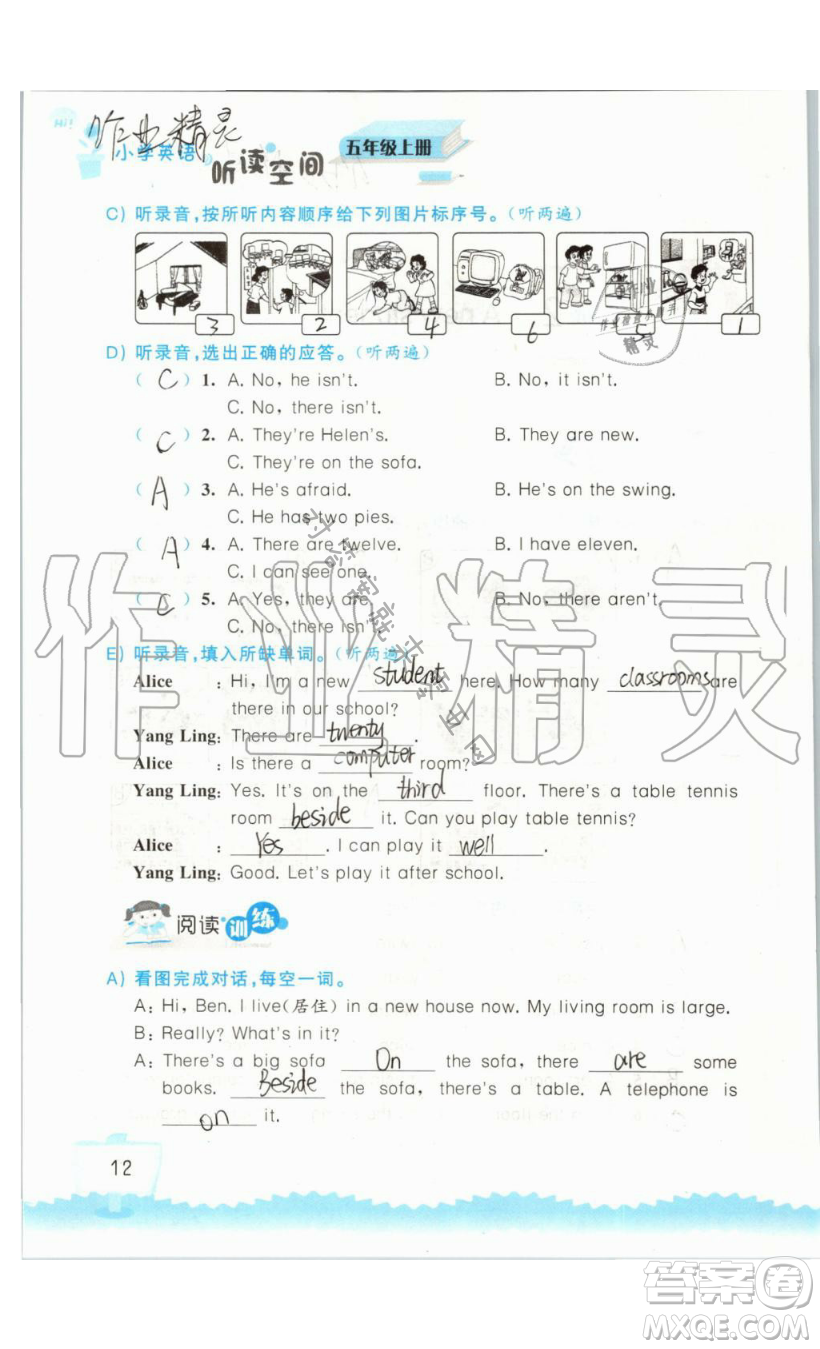 Hi!
作业精灵
小学英语
听读空间
五年级上册
C) 听录音,按所听内容顺序给下列图片标序号。(听两遍)
3 2 4 6 5 1
D) 听录音,选出正确的应答。(听两遍)
( C ) 1. A. No, he isn't. B. No, it isn't.
C. No, there isn't.
( C ) 2. A. They're Helen's. B. They are new.
C. They're on the sofa.
( A ) 3. A. He's afraid. B. He's on the swing.
C. He has two pies.
( A ) 4. A. There are twelve. B. I have eleven.
C. I can see one.
( C ) 5. A. Yes, they are. B. No, there aren't.
C. No, there isn't.
作业精灵
E) 听录音,填入所缺单词。(听两遍)
Alice : Hi, I'm a new student here. How many classrooms are
there in our school?
Yang Ling: There are twenty
Alice : Is there a computer room?
Yang Ling: Yes. It's on the third floor. There's a table tennis
room beside it. Can you play table tennis?
Alice : Yes. I can play it well.
Yang Ling: Good. Let's play it after school.
阅读训练
A) 看图完成对话,每空一词。
A: Hi, Ben. I live(居住) in a new house now. My living room is large.
B: Really? What's in it?
A: There's a big sofa On the sofa, there are some
books. Beside the sofa, there's a table. A telephone is
on it.
12
答案圈
MXQE.COM